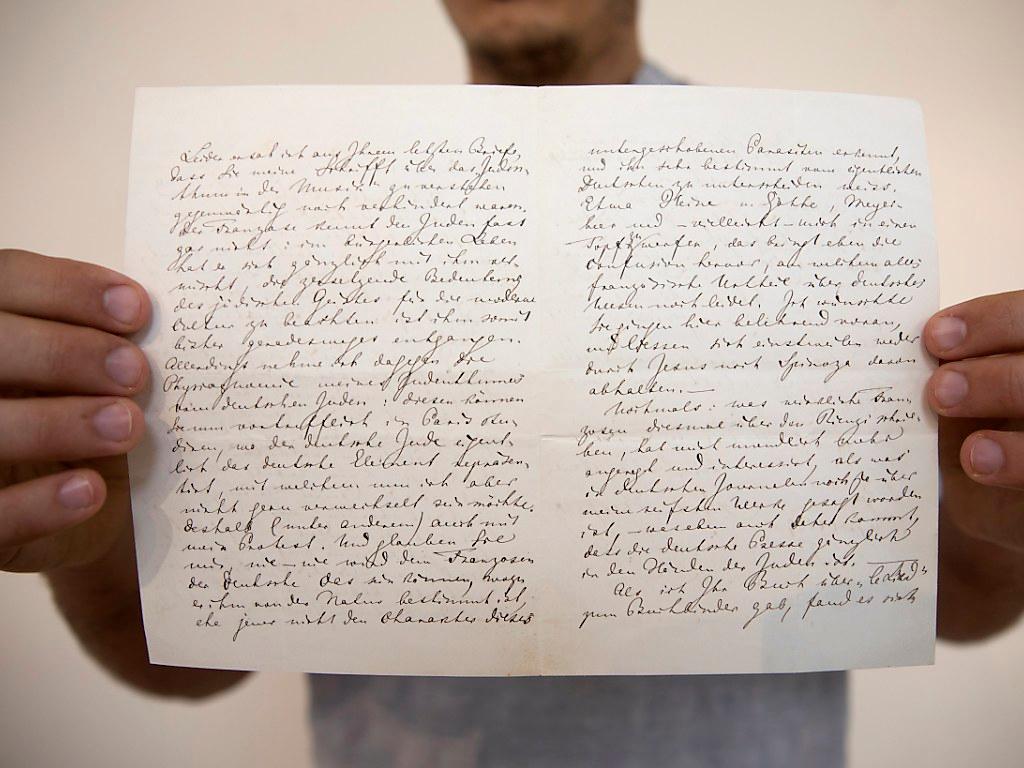 Leider ersah ich aus Ihrem letzten Briefe,
dass Sie meine Schrifft über das Juden-
thum in der Musik zu verstehen
gegenwärtig noch verhindert waren.
Der Franzose kennt den Juden fast
gar nicht: im bürgerlichen Leben
hat er sich gänzlich mit ihm ver-
mischt, die zersetzende Bedeutung
des jüdischen Geistes für die moderne
Cultur zu beachten ist ihm somit
bisher geradesweges entgangen.
Allerdings nehme ich dagegen die
Physiognomie meines Judenthumes
vom deutschen Juden: diesen können
Sie nun vortrefflich in Paris stu-
diren, wo der deutsche Jude eigent-
lich das deutsche Element repräsen-
tirt, mit welchem nun ich aber
nicht gern verwechselt sein möchte,
deshalb (unter anderem) auch mit
mein Protest. Und glauben Sie
mir, nie – nie wird dem Franzosen
der Deutsche das sein können, wozu
er ihm von der Natur bestimmt ist,
ehe jener nicht den Charakter dieses
untergeschobenen Parasiten erkennt,
und ihn sehr bestimmt vom eigentlichen
Deutschen zu unterscheiden weiss.
Etwa Heine u. Göthe, Meyer-
beer und – vielleicht – mich in einen
Topf zu werfen, das bringt eben die
Confusion hervor, an welchem alles
französische Urtheil über deutsches
Wesen noch leidet. Ich wünschte
Sie gingen hier belehrend voran,
und liessen sich einstweilen weder
durch Jesus noch Spinoza davon
abhalten. —
Nochmals: was wirkliche Fran-
zosen diesmal über den Rienzi schrie-
ben, hat mich unendlich mehr
angeregt und interessirt, als was
in deutschen Journalen noch je über
meine reifsten Werke gesagt worden
ist, – welches auch daher kommt,
dass die deutsche Presse gänzlich
in den Händen der Juden ist.
Als ich Ihr Buch über „le Lied"
zum Buchbinder gab, fand es sich